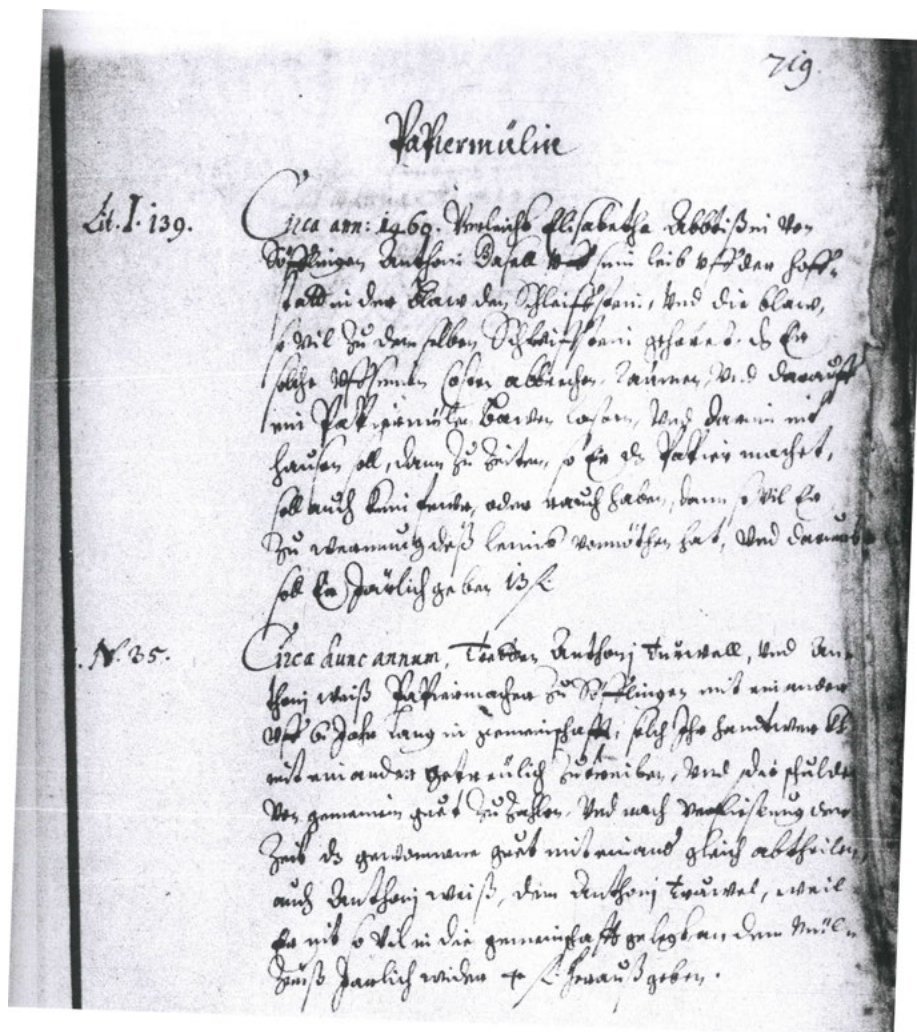 719.
Papiermülin
Lit. I. 139.
Circa ann: 1469. Verleicht Elisabetha Abbtißin von
Söfflingen Anthoni Basell vff sein leib vff der hoff-
statt in der Blaw den Schleiffstein, Vnd die blaw,
so vil zu dem selben Schleiffstein gehöret, dz Er
solche abbrechen, raumen, Vnd darauff
ein Papiermülin Bawen lassen, Vnd darin nit
hausen soll, dann zu Zeiten, so Er dz Papier machet,
soll auch kein fewr, oder rauch haben, dann so vil Er
zu wermung deß leims vonnöthen hat, Vnd darumb
soll Er Järlich geben 13 fl.
N. 35.
Circa hunc annum, Anthonj Truwell, Vnd An-
thonj weiß Papiermacher zu Söfflingen mit einander
vff 6 Jahr lang in gemeinschafft, solch Ihr handtwerckh
mit einander getreülich zutreiben, Vnd die schulden
von gemeinem guet zu zahlen, Vnd nach verfliessung der
Zeit dz gewonnene guet mit einand gleich abtheilen,
auch Anthonj weiß, dem Anthonj Truwel, weil
Er nit so vil in die gemeinschafft gelegt an dem Mül-
Zinß Järlich wider fl. herauß geben.